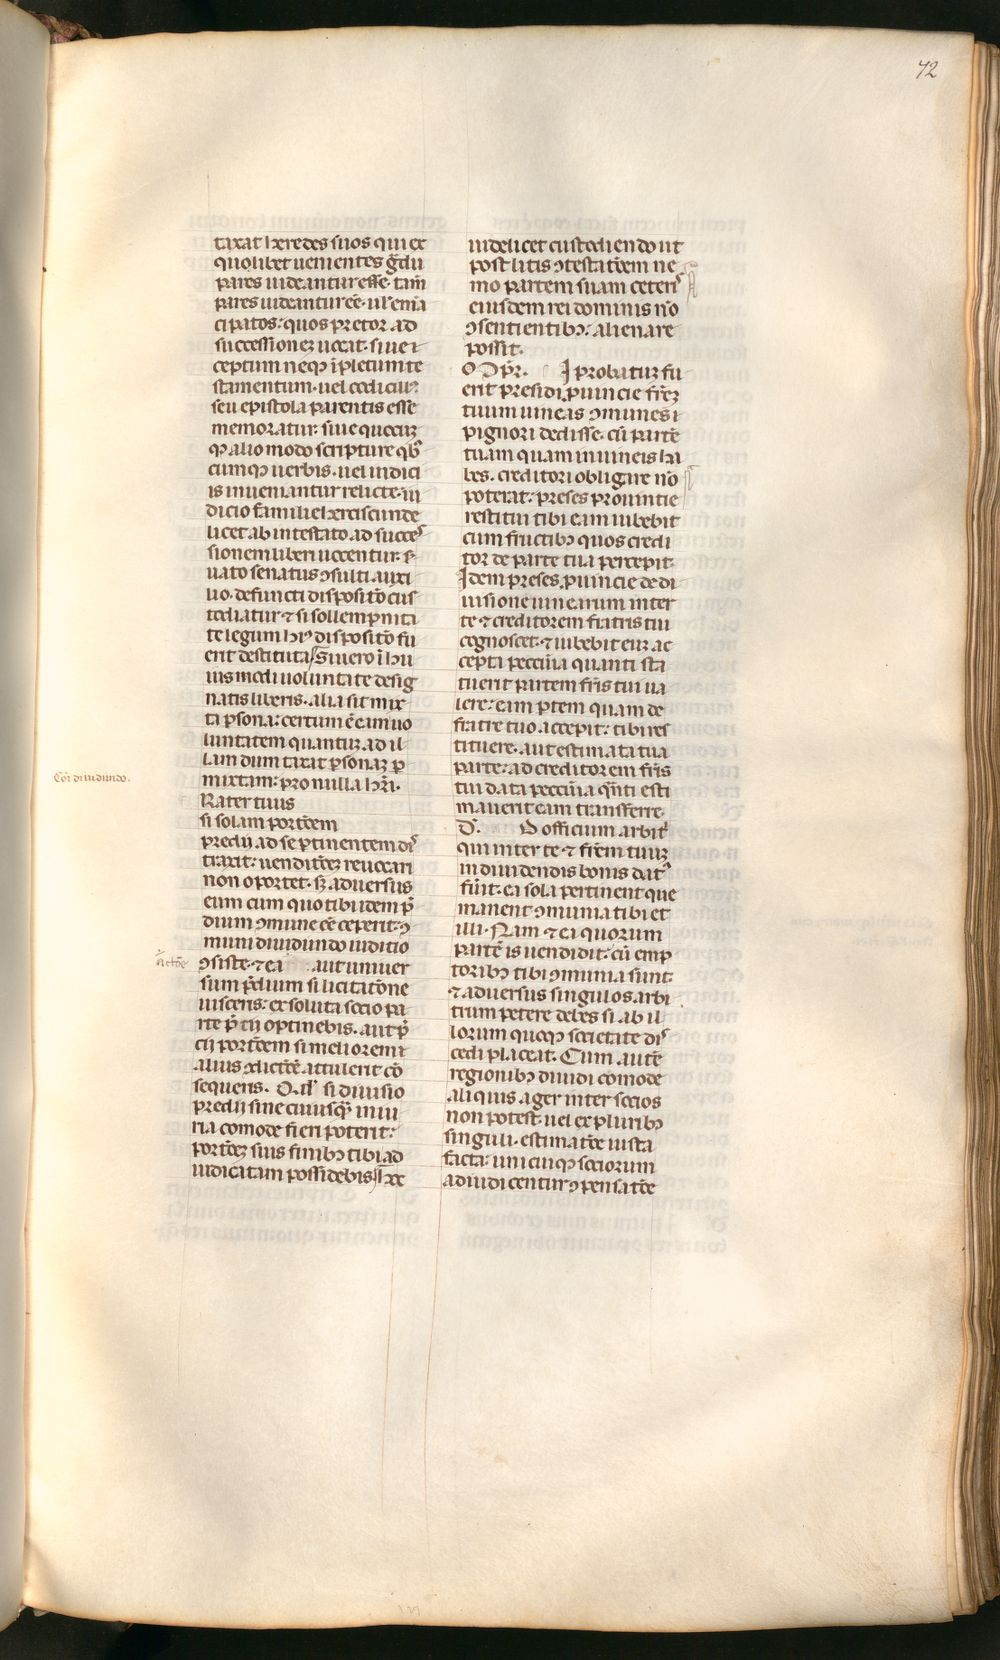 72
taxat heredes suos qui ex
quolibet uenientes g̅du
pares uideantur esse. tam̅
pares uideantur ee̅. ul̕ ema̅
cipatos: quos pretor ad
successionez uocat. siue i
ceptum neqꝫ i̅pletum te
stamentum. uel codicill᷒
seu epistola parentis esse
memoratur. siue quocuz
qꝫ alio modo scripture qb᷒
cumqꝫ uerbis. uel indici
is inueniantur relicte. iu
dicio familie herciscunde
licet ab intestato ad succes
sionem liberi uocentur. s̕
uato senatus ꝯsulti auxi
lio. defuncti dispositio̅ cus
todiatur ⁊ si sollempnita
te legum hui᷒ dispositio̅ fu
erit destituta. Si uero i̅ hu
iusmodi uoluntate desig
natis liberis. alia sit mix
ta ꝑsona: certum e̅ eam uo
luntatem quantuz ad il
lam dum taxat ꝑsonaz ꝑ
mixtam: pro nulla hr̅i.
Rater tuus
si solam portio̅em
predii ad se ꝑtinentem dis
traxit: uenditio̅ez reuocari
non oportet. sꝫ aduersus
eum cum quo tibi idem p̅
dium ꝯmune ee̅ ceperit: ꝯ
muni diuidundo iuditio
ꝯsiste. ⁊ ea aut uniuer
sum p̅dium si licitatio̅ne
uiscens. exsoluta socio pa
rte p̅tii optinebis. aut p̅
cii portio̅em si meliorem
alius ꝯdictio̅e̅ attulerit co̅
sequens. Q. d̕ si diuisio
predii sine cuiusq̅ iniu
ria comode fieri poterit:
portio̅ez suis finibꝫ tibi ad
iudicatam possidebis. Exc
Co̅i diuidundo.
Actio̅e
uidelicet custodiendo ut
post litis ꝯtestatio̅em ne
mo partem suam ceteris
eiusdem rei dominis no̅
ꝯsentientibꝫ: alienare
possit.
O D pr̅. I probatur fu
erit presidi ꝓuincie fr̅ez
tuum uineas ꝯmunes i
pignori dedisse. cu̅ parte̅
tuam quam in uineis ha
bes. creditori obligare no̅
poterat: preses prouintie
restitui tibi eam iubebit
cum fructibꝫ quos credi
tor de parte tua percepit.
Idem preses ꝓuincie de di
uisione uinearum inter
te ⁊ creditorem fratris tui
cognoscet. ⁊ iubebit euz ac
cepta peccu̅ia quanti sta
tuerit partem fr̅is tui ua
lere: eam ꝑtem quam de
fratre tuo accepit: tibi res
tituere. aut estimata tua
parte: ad creditorem fr̅is
tui data peccu̅ia qu̅nti esti
mauerit eam transferre.
D. D officium arbitri
qui inter te ⁊ fr̅em tuuz
in diuidendis bonis dat᷒
fu̅it. ea sola pertinent que
manent ꝯmunia tibi et
illi. Nam ⁊ ei quorum
parte̅ is uendidit: cu̅ emp
toribꝫ tibi ꝯmunia sunt.
⁊ aduersus singulos arbi
trium petere debes si ab il
lorum quoqꝫ societate dis
cedi placeat. Cum aute̅
regionibꝫ diuidi co̅mode
aliquis ager inter socios
non potest. uel ex pluribꝫ
singuli. estimatio̅e iusta
facta: unicuiqꝫ sociorum
adiudicentur ꝯpensatio̅e